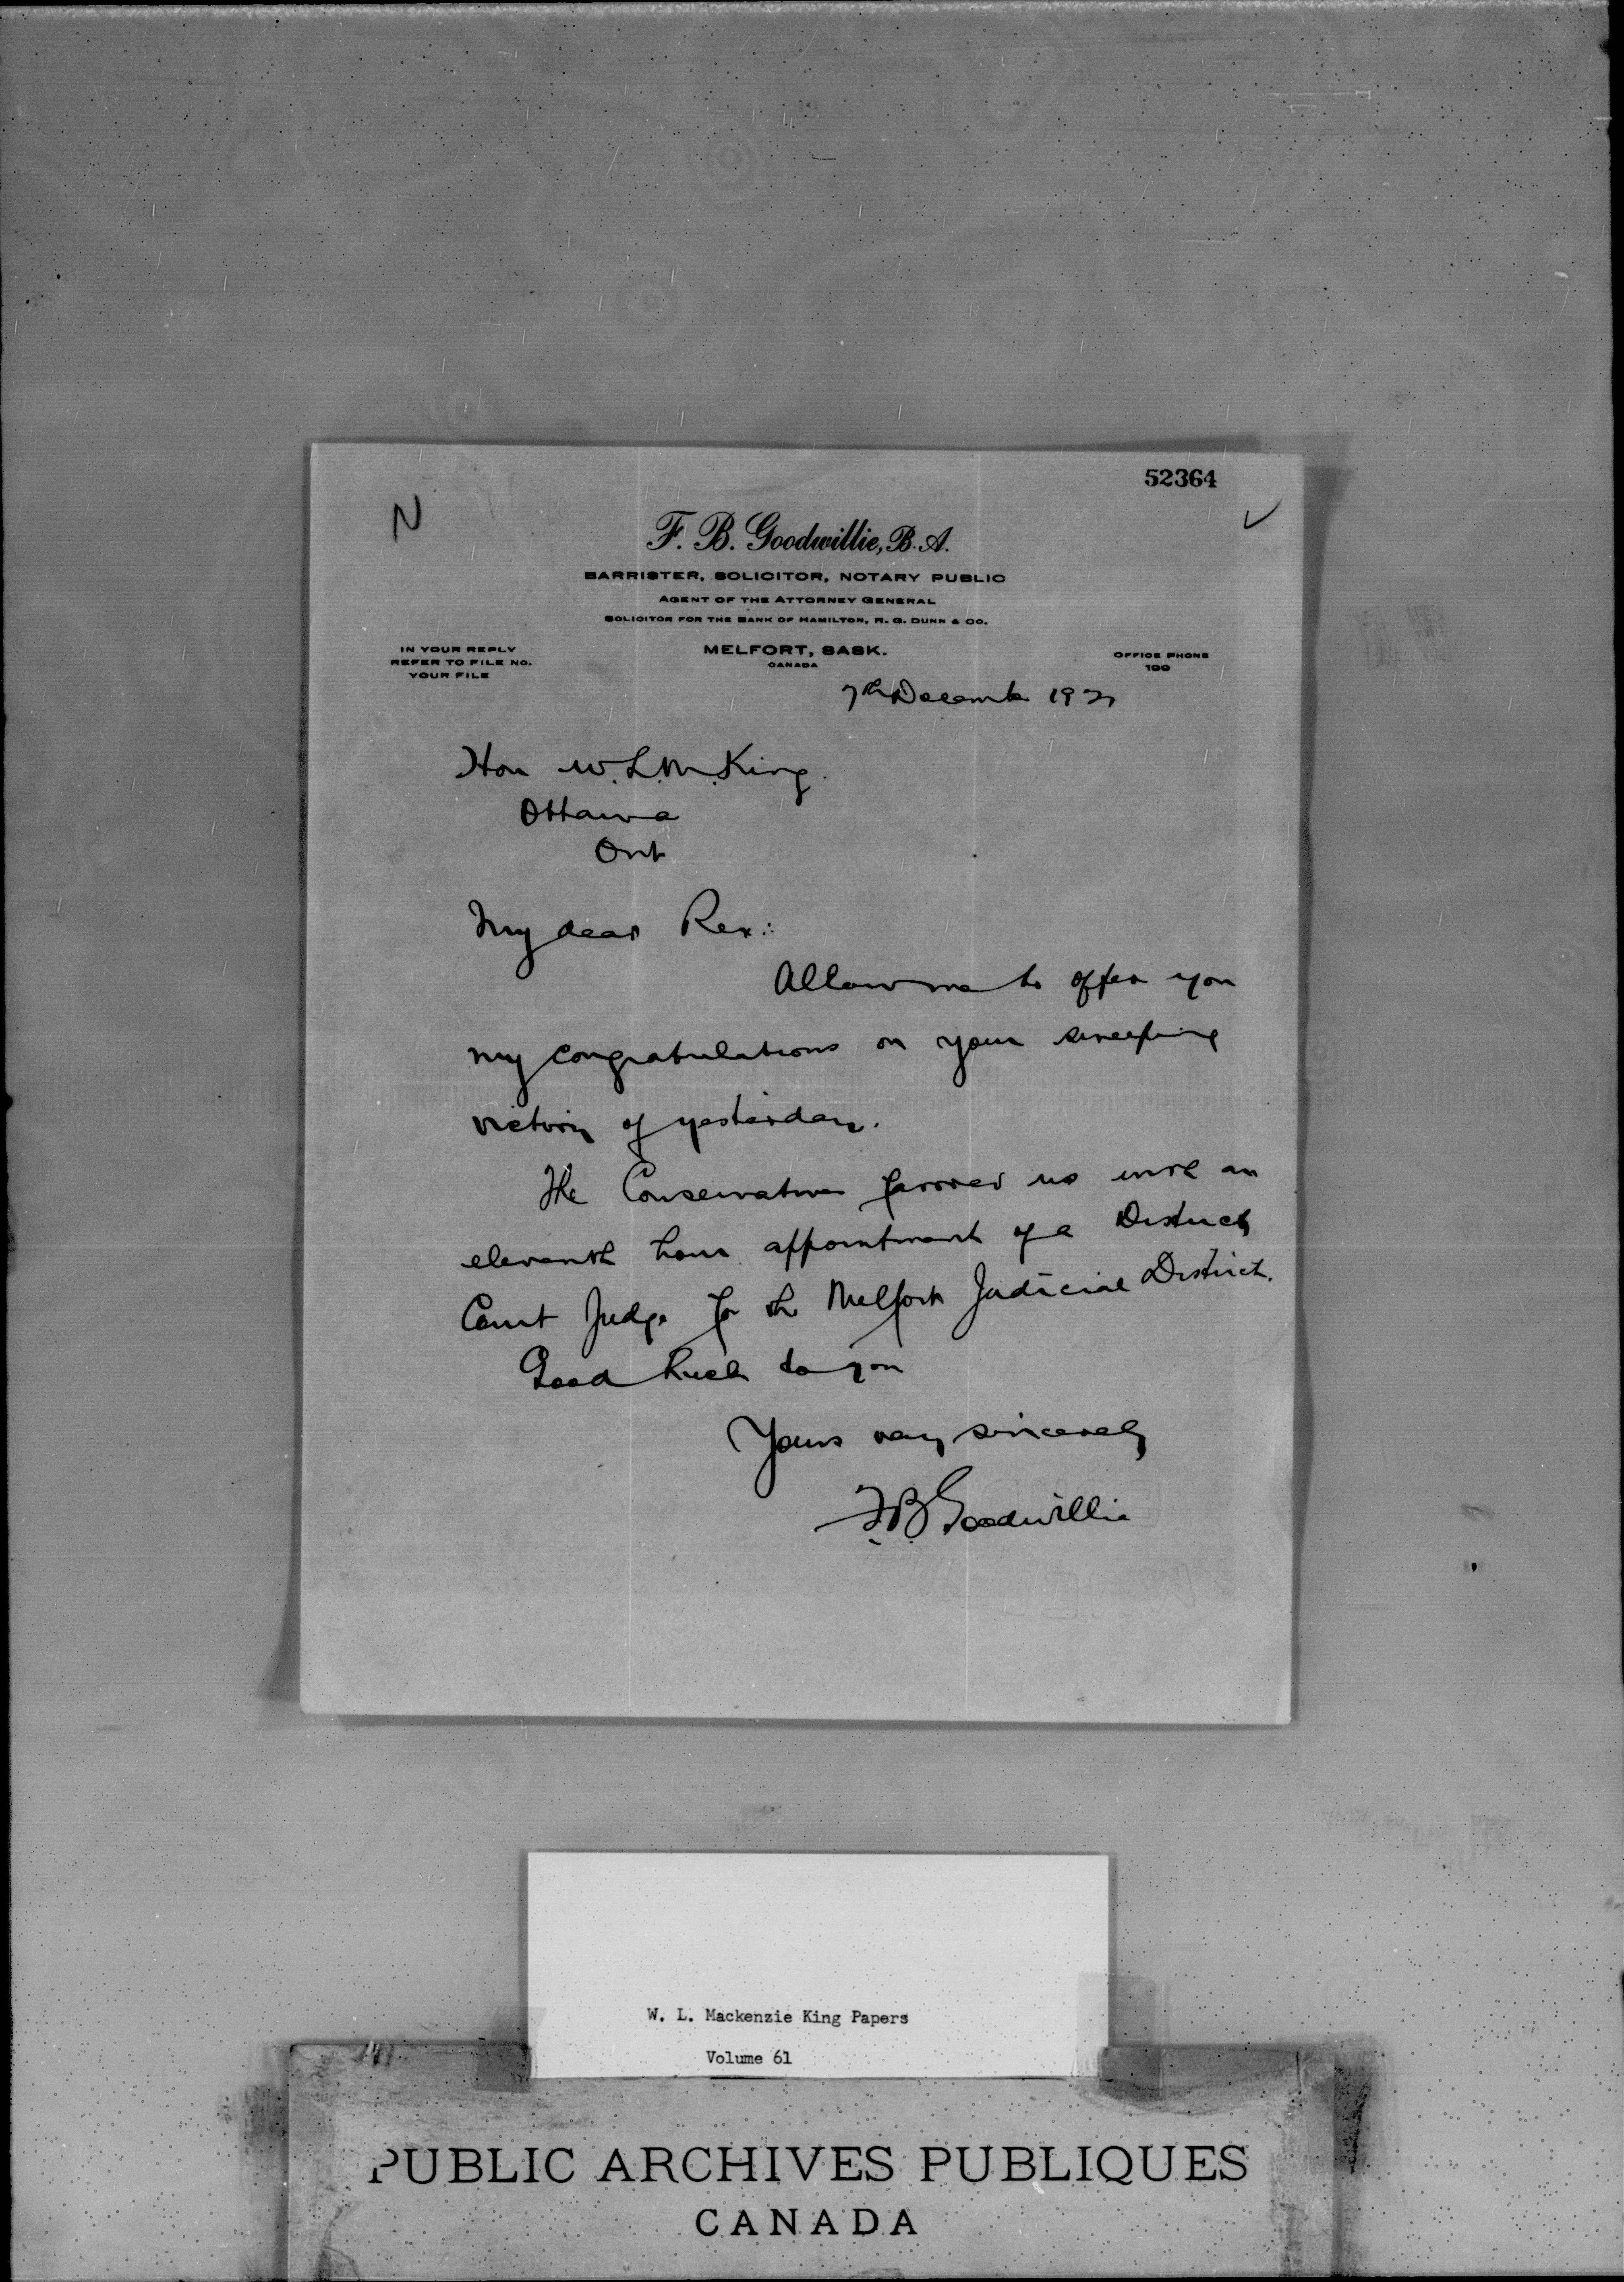 52364
N
F. B. Goodwillie, B.A.
BARRISTER, SOLICITOR, NOTARY PUBLIC
AGENT OF THE ATTORNEY GENERAL
SOLICITOR FOR THE BANK OF HAMILTON, R. G. DUNN & CO.
IN YOUR REPLY
REFER TO FILE NO.
YOUR FILE
MELFORT, SASK.
CANADA
OFFICE PHONE
199
7th December 1921
Hon W.L.M. King.
Ottawa
Ont
My dear Rex:
Allow me to offer you
my congratulations on your sweeping
victory of yesterday.
The Conservatives favored us with an
eleventh hour appointment of a District
Court Judge for the Melfort Judicial District.
Good Luck to you
Yours very sincerely
F.B. Goodwillie
W. L. Mackenzie King Papers
Volume 61
PUBLIC ARCHIVES PUBLIQUES
CANADA